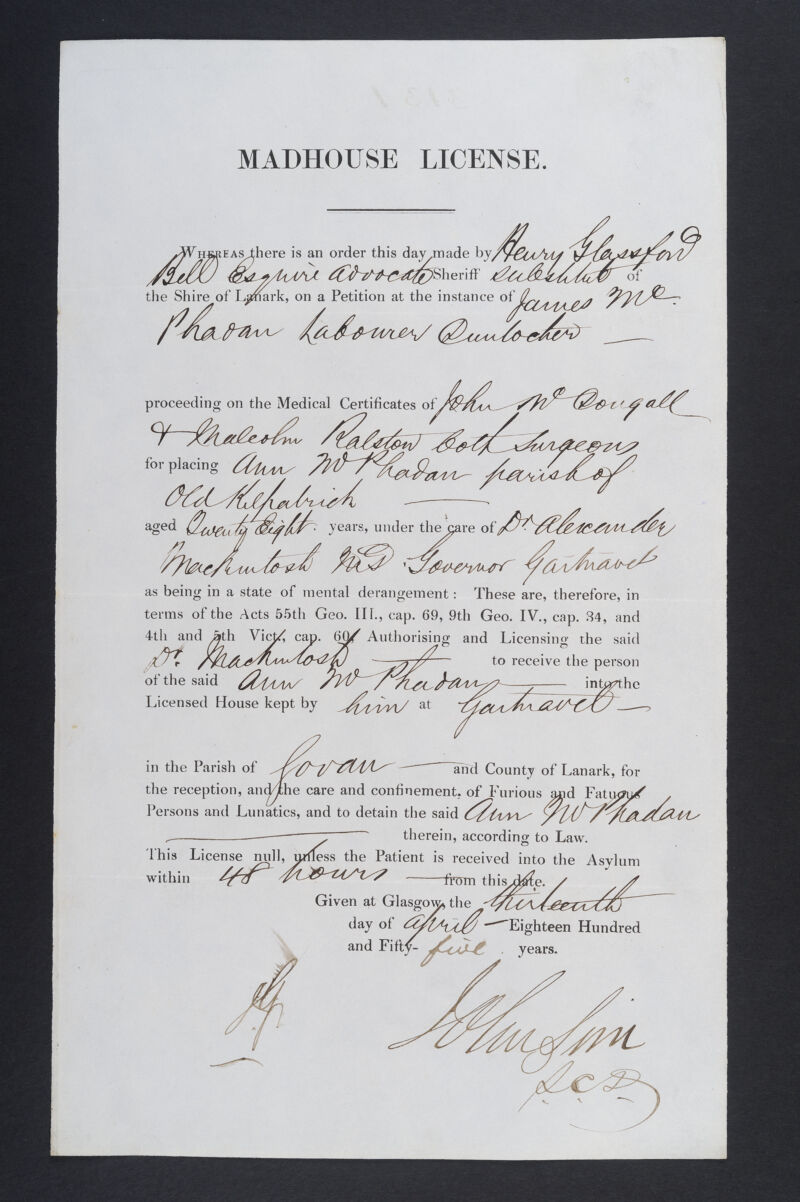 MADHOUSE LICENSE.
WHEREAS there is an order this day made by Henry Glassford
Bell Esquire Advocate Sheriff Substitute of
the Shire of Lanark, on a Petition at the instance of James Mc
Phadan Labourer Duntocher
proceeding on the Medical Certificates of John McDougall
& Malcolm Ralston both Surgeons
for placing Ann McPhadan parish of
Old Kilpatrick
aged Twenty Eight years, under the care of Dr. Alexander
Mackintosh M.D. Governor Gartnavel
as being in a state of mental derangement: These are, therefore, in
terms of the Acts 55th Geo. III., cap. 69, 9th Geo. IV., cap. 34, and
4th and 5th Vict., cap. 60, Authorising and Licensing the said
Dr. Mackintosh to receive the person
of the said Ann McPhadan into the
Licensed House kept by him at Gartnavel
in the Parish of Govan and County of Lanark, for
the reception, and the care and confinement, of Furious and Fatuous
Persons and Lunatics, and to detain the said Ann McPhadan
therein, according to Law.
This License null, unless the Patient is received into the Asylum
within 48 hours from this date.
Given at Glasgow, the thirteenth
day of April Eighteen Hundred
and Fifty-five years.
John Sim